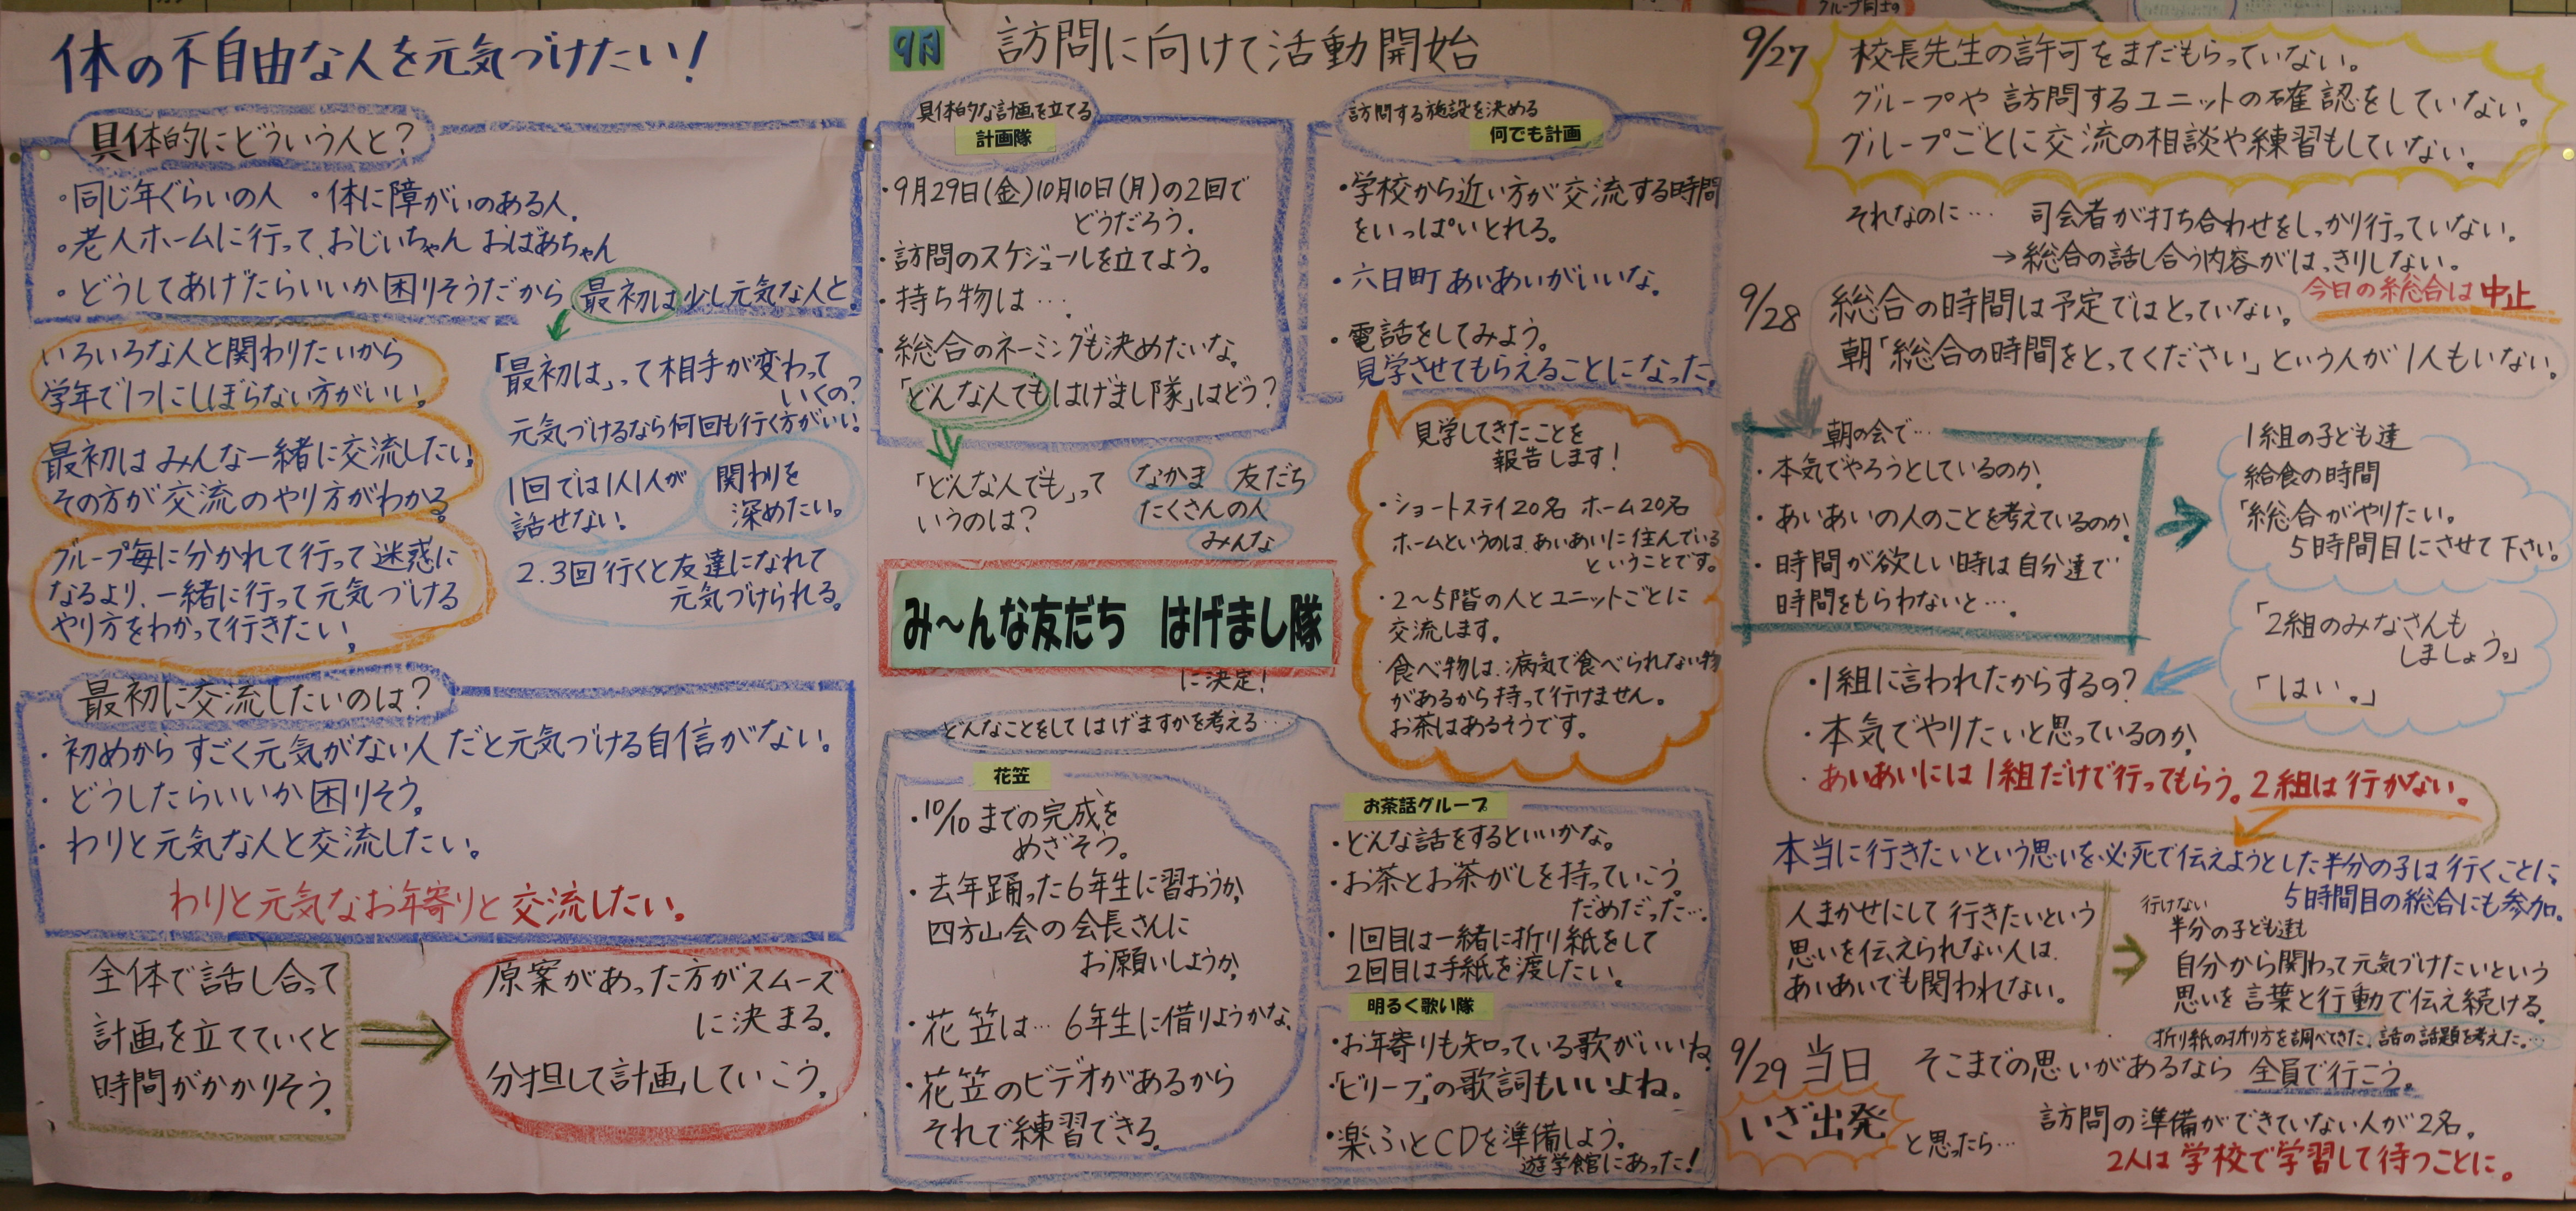 体の不自由な人を元気づけたい!
具体的にどういう人と?
・同じ年ぐらいの人 ・体に障がいのある人。
・老人ホームに行って、おじいちゃん おばあちゃん
・どうしてあげたらいいか困りそうだから、最初は少し元気な人と。
いろいろな人と関わりたいから
学年で1つにしぼらない方がいい。
最初はみんな一緒に交流したい。
その方が交流のやり方がわかる。
グループ毎に分かれて行って迷惑に
なるより、一緒に行って元気づける
やり方をわかって行きたい。
「最初は」って相手が変わって
いくの?
元気づけるなら何回も行く方がいい!
1回では1人1人が
話せない。
関わりを
深めたい。
2.3回行くと友達になれて
元気づけられる。
最初に交流したいのは?
・初めからすごく元気がない人だと元気づける自信がない。
・どうしたらいいか困りそう。
・わりと元気な人と交流したい。
わりと元気なお年寄りと交流したい。
全体で話し合って
計画を立てていくと
時間がかかりそう。
原案があった方がスムーズ
に決まる。
分担して計画していこう。
9月 訪問に向けて活動開始
具体的な計画を立てる
計画隊
・9月29日(金)10月10日(月)の2回で
どうだろう。
・訪問のスケジュールを立てよう。
・持ち物は…
・総合のネーミングも決めたいな。
「どんな人でもはげまし隊」はどう?
「どんな人でも」って
いうのは?
なかま 友だち
たくさんの人
みんな
み〜んな友だち はげまし隊
に決定!
訪問する施設を決める
何でも計画
・学校から近い方が交流する時間
をいっぱいとれる。
・六日町あいあいがいいな。
・電話をしてみよう。
見学させてもらえることになった。
見学してきたことを
報告します!
・ショートステイ20名 ホーム20名
ホームというのは、あいあいに住んでいる
ということです。
・2〜5階の人とユニットごとに
交流します。
・食べ物は、病気で食べられない物
があるから持って行けません。
お茶はあるそうです。
どんなことをしてはげますかを考える…
花笠
・10/10までの完成を
めざそう。
・去年踊った6年生に習おうか。
四方山会の会長さんに
お願いしようか。
・花笠は…6年生に借りようかな。
・花笠のビデオがあるから
それで練習できる。
お茶話グループ
・どんな話をするといいかな。
・お茶とお茶がしを持っていこう。
だめだった…。
・1回目は一緒に折り紙をして
2回目は手紙を渡したい。
明るく歌い隊
・お年寄りも知っている歌がいいね。
・「ビリーブ」の歌詞もいいよね。
・楽ふとCDを準備しよう。
遊学館にあった!
9/27 校長先生の許可をまだもらっていない。
グループや訪問するユニットの確認をしていない。
グループごとに交流の相談や練習もしていない。
それなのに… 司会者が打ち合わせをしっかり行っていない。
→総合の話し合う内容がはっきりしない。
今日の総合は中止
9/28 総合の時間は予定ではとっていない。
朝「総合の時間をとってください」という人が1人もいない。
朝の会で…
・本気でやろうとしているのか。
・あいあいの人のことを考えているのか。
・時間が欲しい時は自分達で
時間をもらわないと…。
1組の子ども達
給食の時間
「総合がやりたい。
5時間目にさせて下さい。
「2組のみなさんも
しましょう。」
「はい。」
・1組に言われたからするの?
・本気でやりたいと思っているのか。
・あいあいには1組だけで行ってもらう。2組は行かない。
本当に行きたいという思いを必死で伝えようとした半分の子は行くことに。
5時間目の総合にも参加。
人まかせにして行きたいという
思いを伝えられない人は、
あいあいでも関われない。
行けない
半分の子ども達も
自分から関わって元気づけたいという
思いを言葉と行動で伝え続ける。
折り紙の折り方を調べてきた、話の話題を考えた。…
9/29 当日 そこまでの思いがあるなら全員で行こう。
いざ出発 と思ったら…
訪問の準備ができていない人が2名。
2人は学校で学習して待つことに。